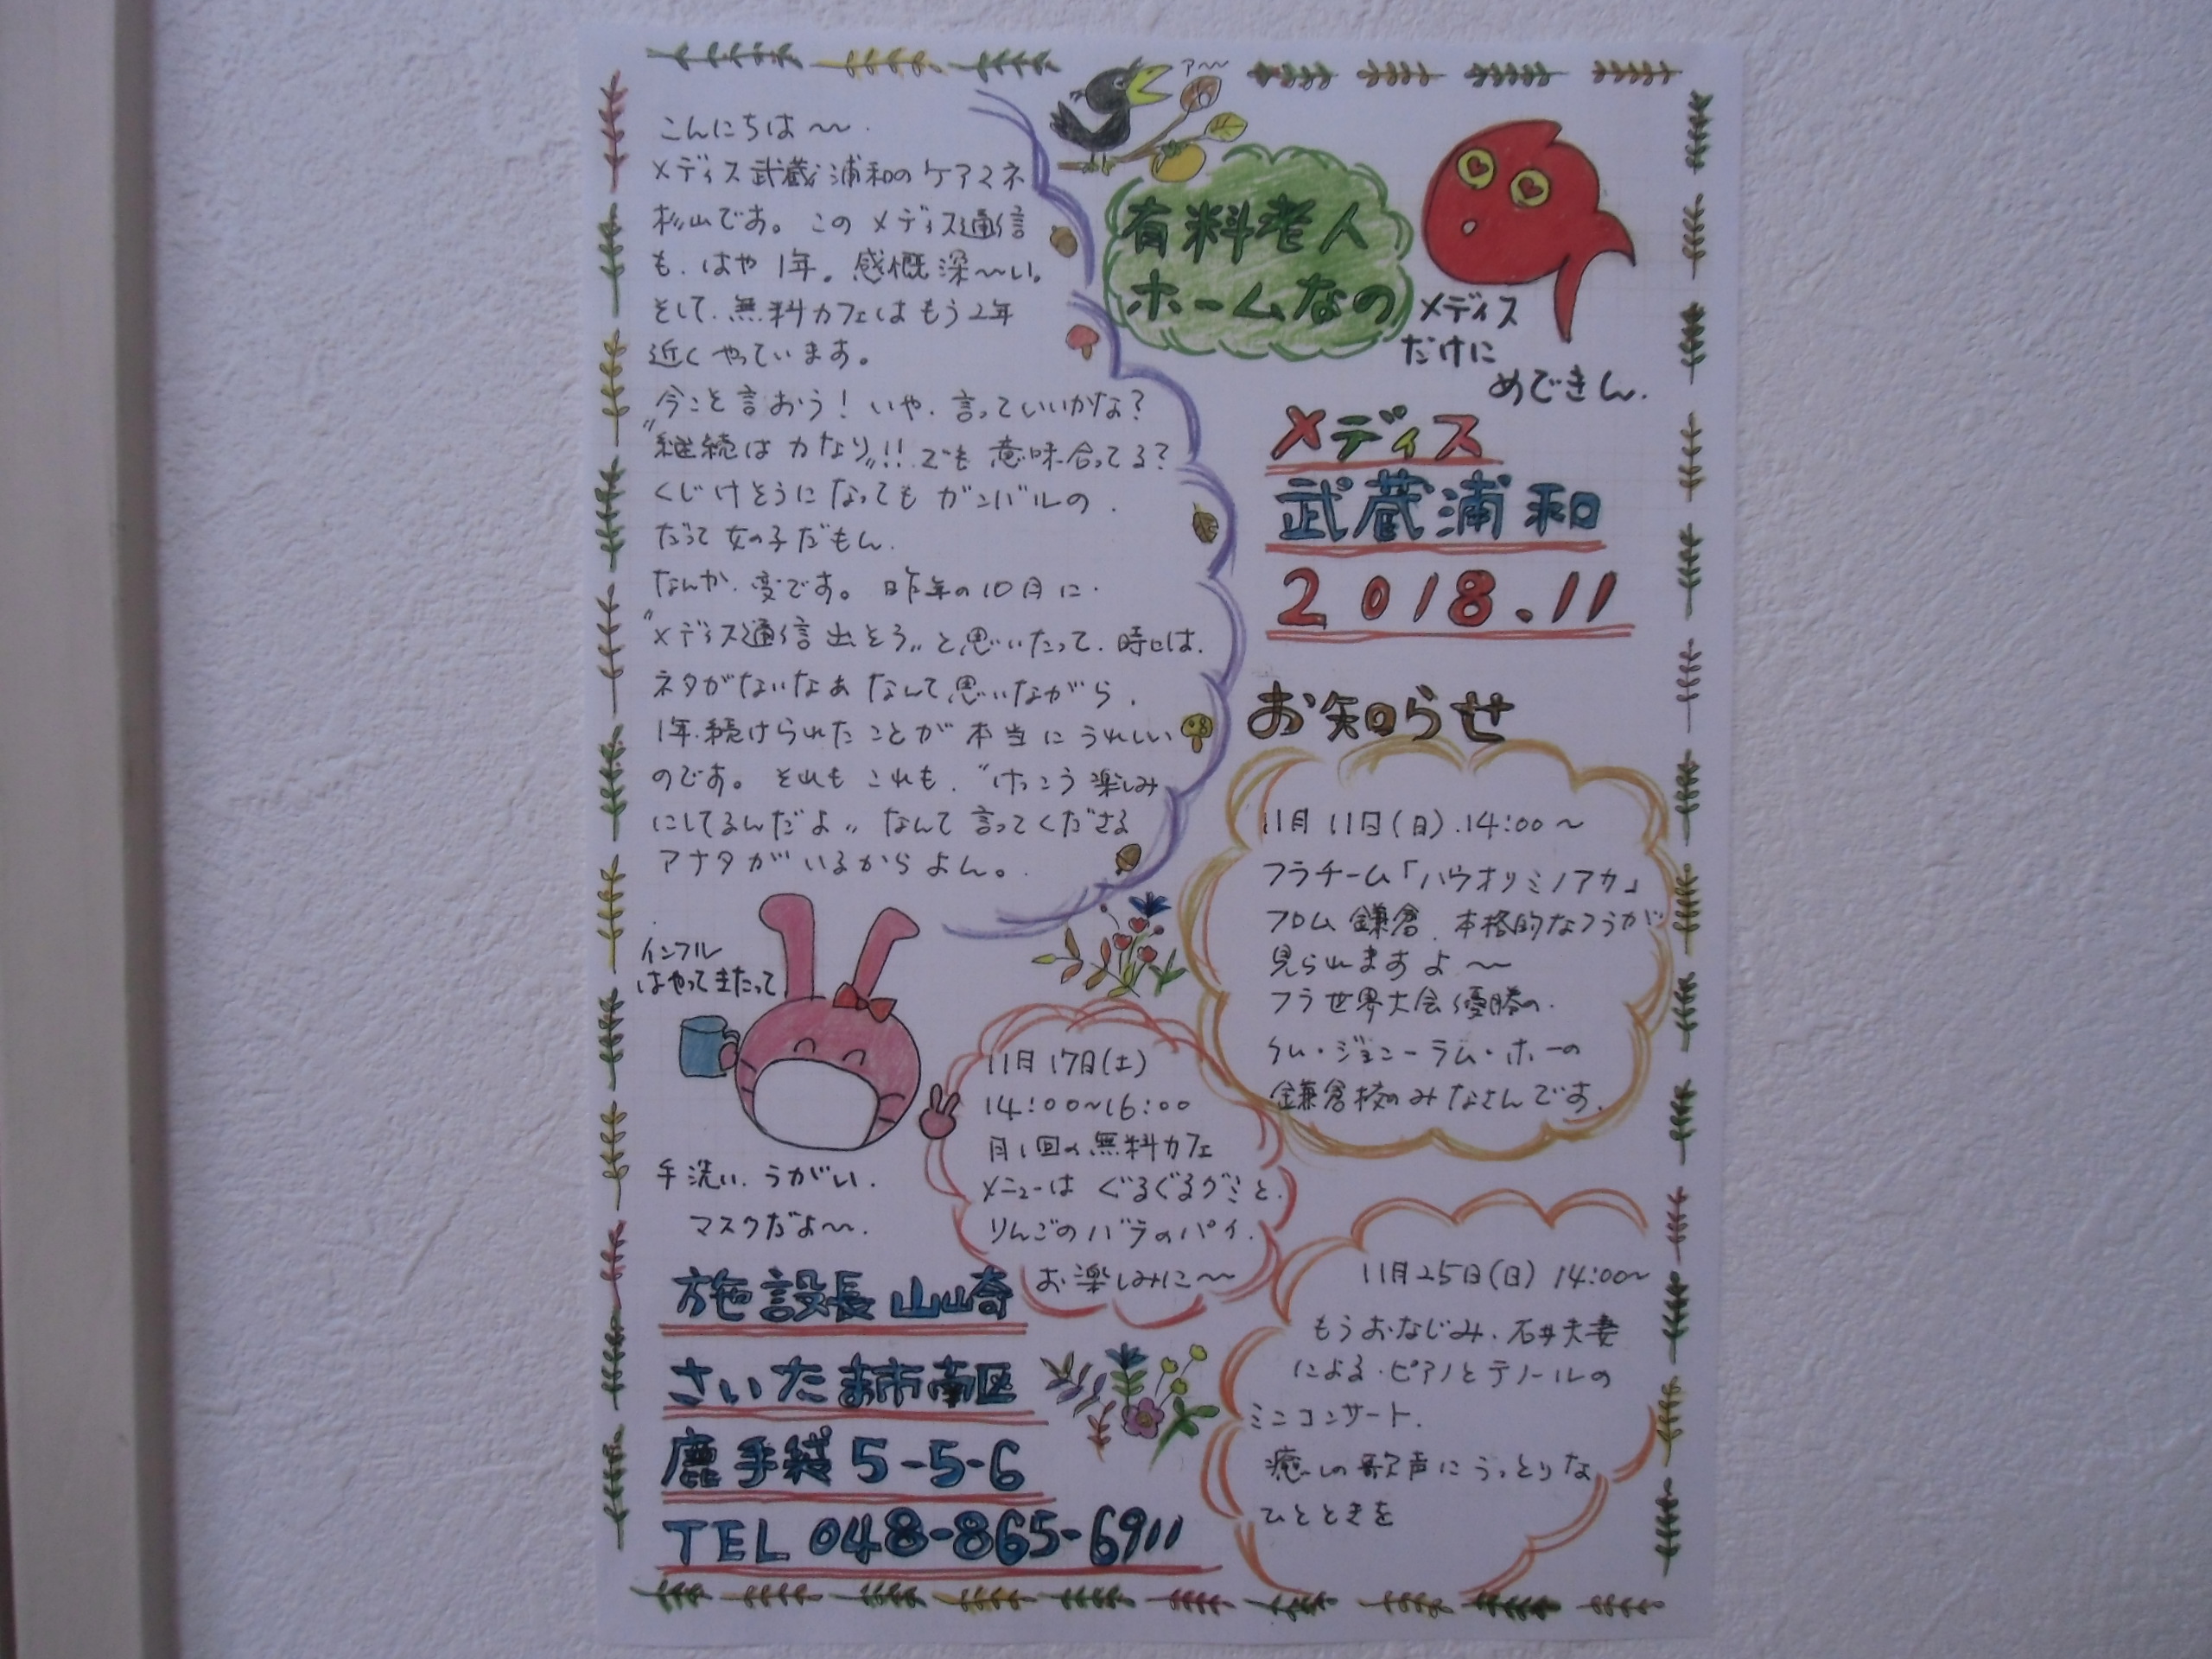 こんにちは〜.
メディス武蔵浦和のケアマネ
杉山です。このメディス通信
も、はや1年。感慨深〜い。
そして、無料カフェはもう2年
近くやっています。
今こそ言おう！いや、言っていいかな？
〝継続は力なり〟!!でも意味合ってる？
くじけそうになってもガンバルの.
だって女の子だもん.
なんか、変です。昨年の10月に.
〝メディス通信出そう〟と思いたって、時には、
ネタがないなぁなんて思いながら、
1年、続けられたことが本当にうれしい
のです。それもこれも、〝けっこう楽しみ
にしてるんだよ〟なんて言ってくださる
アナタがいるからよん。
アー
有料老人
ホームなの
メディス
だけに
めできん.
メディス
武蔵浦和
2018.11
お知らせ
11月11日(日).14:00〜
フラチーム「ハウオリミノアカ」
フロム鎌倉、本格的なフラが
見られますよ〜
フラ世界大会優勝の.
ケム・ジョニーラム・ホーの
鎌倉校のみなさんです.
インフル
はやってきたって
手洗い、うがい.
マスクだよ〜.
11月17日(土)
14:00〜16:00
月1回の無料カフェ
メニューはぐるぐるグミと、
りんごのバラのパイ.
お楽しみに〜
11月25日(日) 14:00〜
もうおなじみ、石井夫妻
による.ピアノとテノールの
ミニコンサート.
癒しの歌声にうっとりな
ひとときを
施設長 山崎
さいたま市南区
鹿手袋5-5-6
TEL 048-865-6911